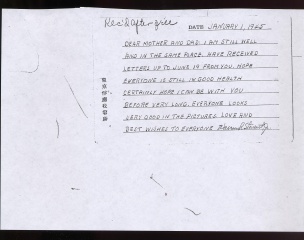 Rec'd after
DATE JANUARY 1, 1945
DEAR MOTHER AND DAD. I AM STILL WELL
AND IN THE SAME PLACE. HAVE RECEIVED
LETTERS UP TO JUNE 19 FROM YOU. HOPE
EVERYONE IS STILL IN GOOD HEALTH
CERTAINLY HOPE I CAN BE WITH YOU
BEFORE VERY LONG. EVERYONE LOOKS
VERY GOOD IN THE PICTURES. LOVE AND
BEST WISHES TO EVERYONE